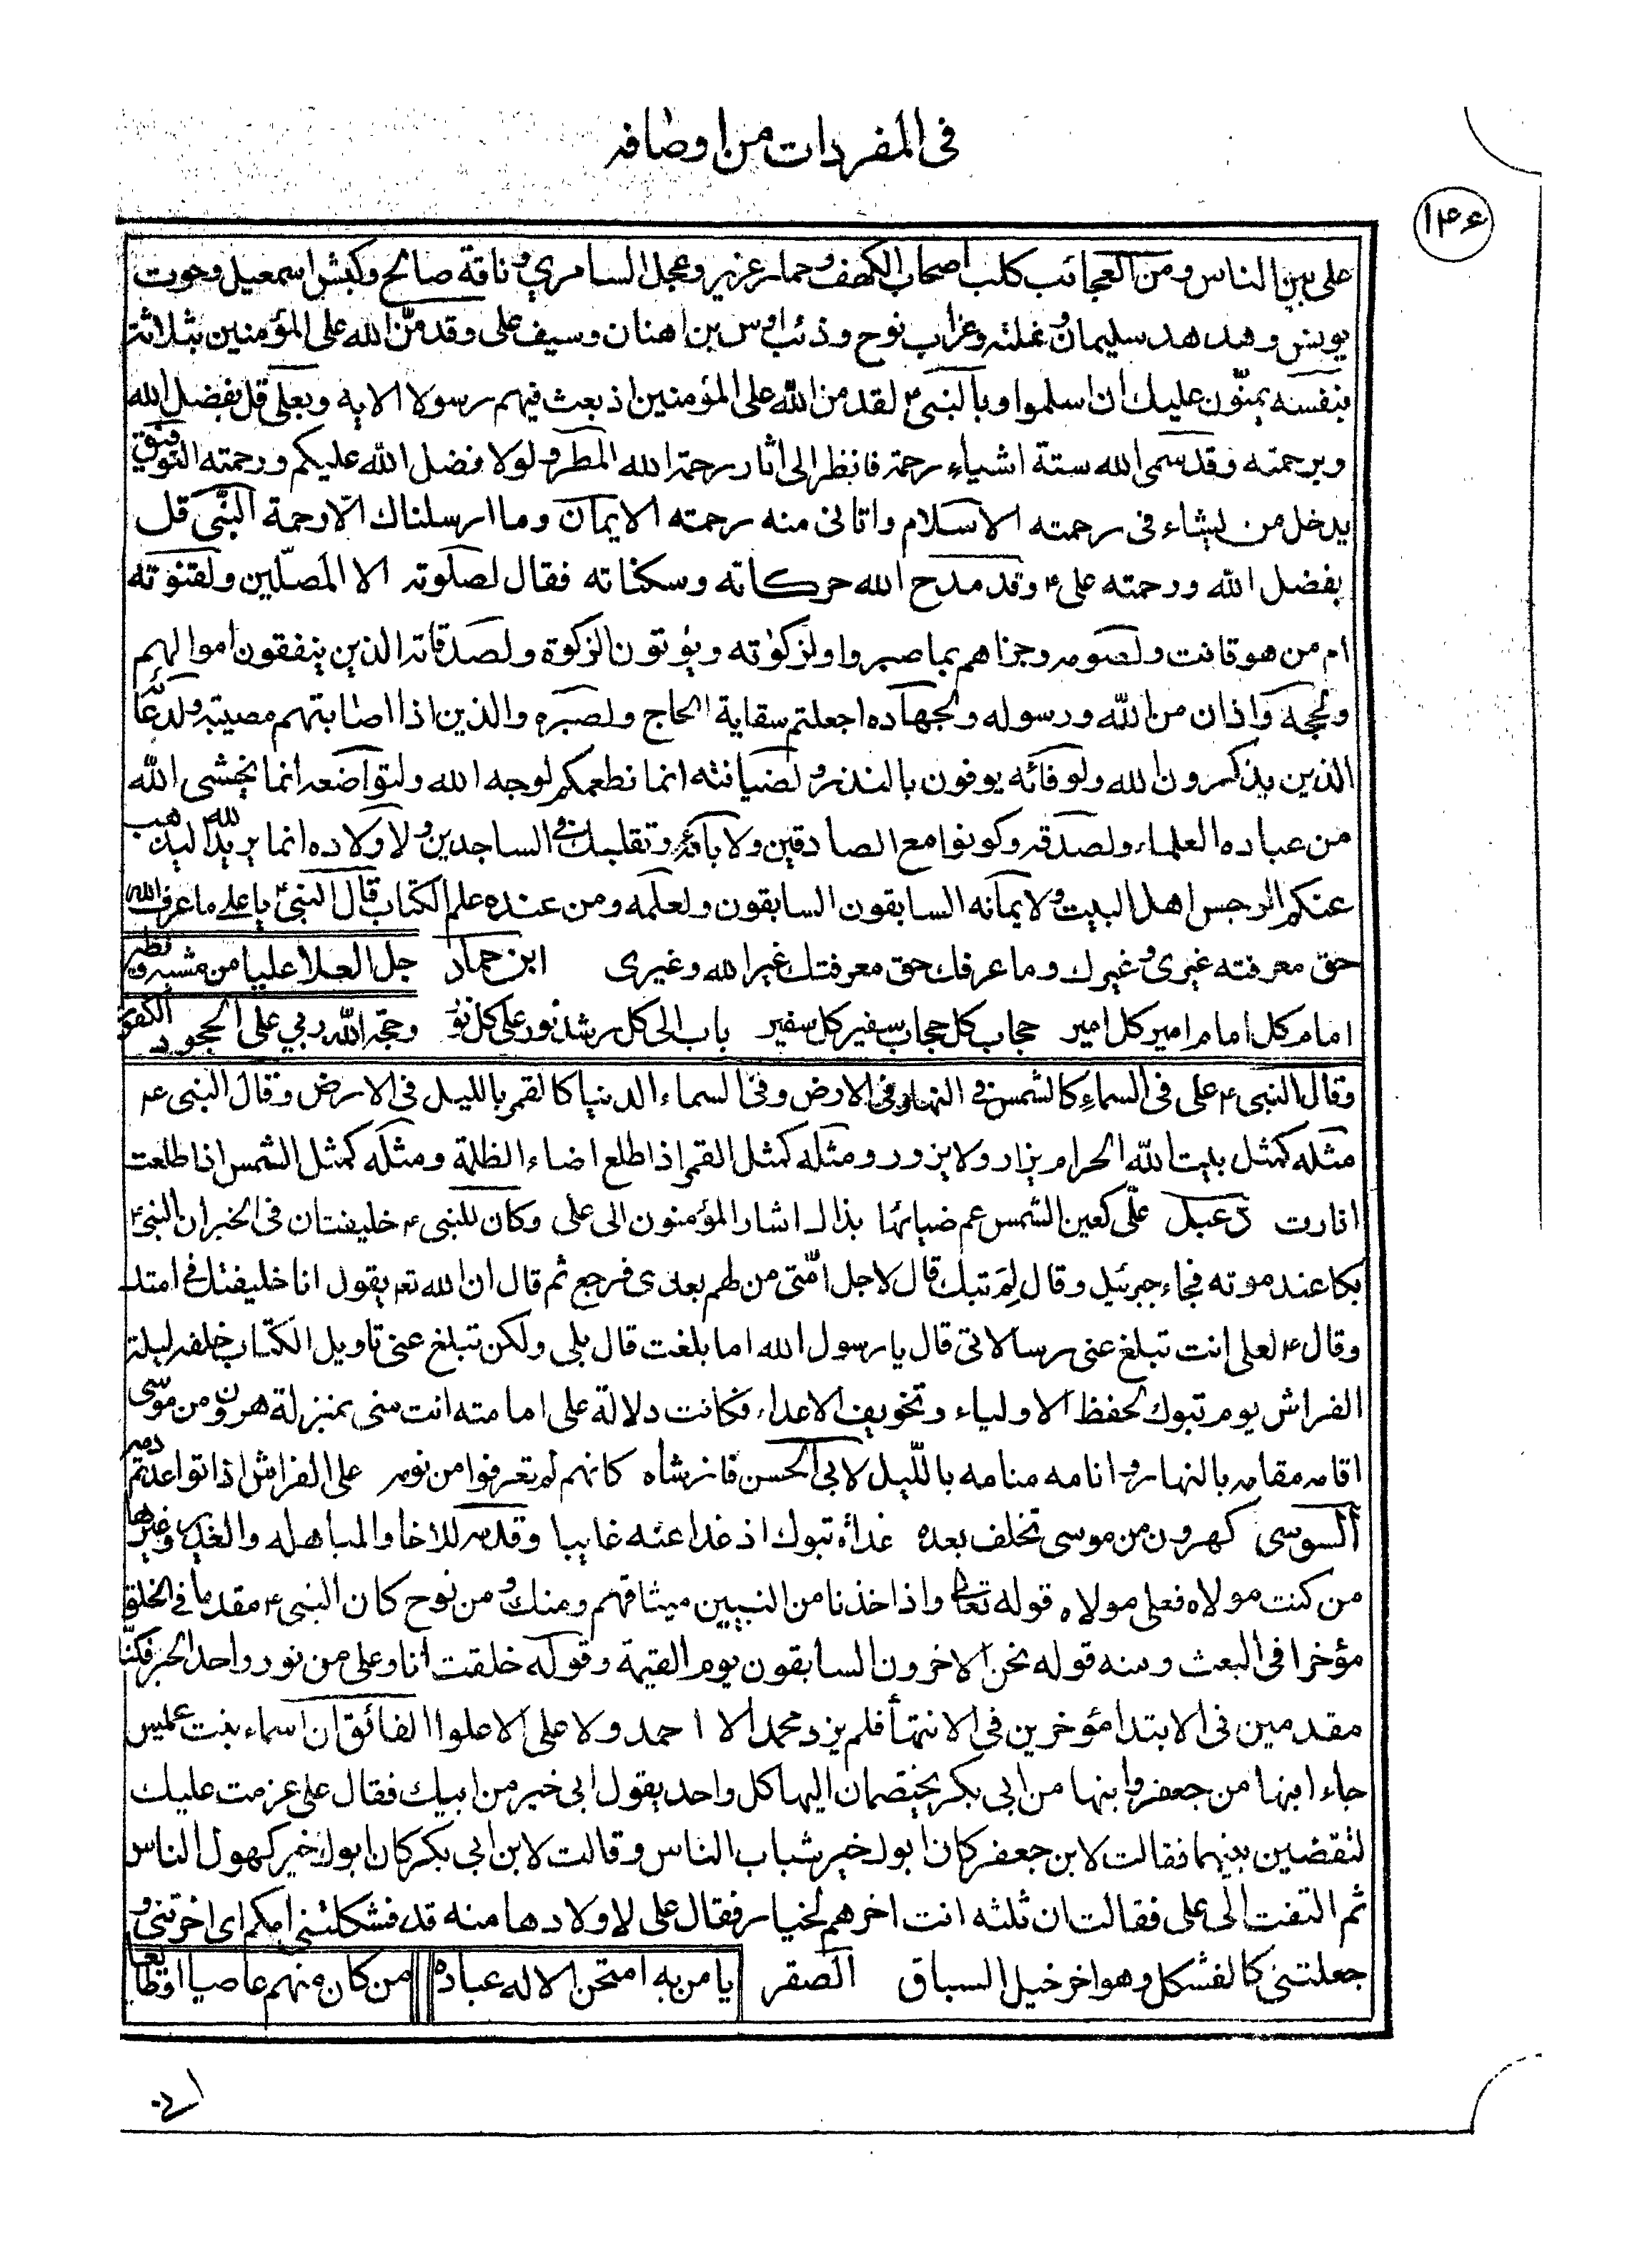 في المفردات من اوصافه
۱۴۶
على بين الناس ومن العجائب كلب اصحاب الكهف وحمار عزير وعجل السامري وناقة صالح وكبش اسمعيل وحوت
يونس وهدهد سليمان ونملته وغراب نوح وذئب اوس بن اهنان وسيف على وقد منّ الله على المؤمنين بثلاثة
بنفسه يمنّون عليك ان اسلموا وبالنبى ۴ لقد من الله على المؤمنين اذ بعث فيهم رسولا الاية وبعلى قل بفضل الله
وبرحمته وقد سمى الله ستة اشياء رحمة فانظر الى اثار رحمة الله المطر ولولا فضل الله عليكم ورحمته التوفيق
يدخل من يشاء فى رحمته الاسلام واتانى منه رحمته الايمان وما ارسلناك الّا رحمة النّبى قل
بفضل الله ورحمته على ۴ وقد مدح الله حركاته وسكناته فقال لصلوته الا المصلّين ولقنوته
ام من هو قانت ولصومه وجزاهم بما صبروا ولزكوٰته ويؤتون الزكوة ولصدقاته الذين ينفقون اموالهم
ولحجه واذان من الله ورسوله ولجهاده اجعلتم سقاية الحاج ولصبره والذين اذا اصابتهم مصيبة ولدعائه
الذين يذكرون الله ولوفائه يوفون بالنذر ولضيافته انما نطعمكم لوجه الله ولتواضعه انما يخشى الله
من عباده العلماء ولصدقه وكونوا مع الصادقين ولابآئه وتقلبك فى الساجدين ولاولاده انما يريد الله ليذهب
عنكم الرجس اهل البيت ولايمانه السابقون السابقون ولعلمه ومن عنده علم الكتاب قال النبى ۴ يا على ما عرف الله
حق معرفته غيرى وغيرك وما عرفك حق معرفتك غير الله وغيرى ابن حماد جل العلا عليا من مشبه ونظير
امام كل امام امير كل امير حجاب كل حجاب سفير كل سفير باب الى كل رشد نور على كل نور وحجة الله ربي على الجحود الكفور
وقال النبى ۴ على فى السماء كالشمس فى النهار فى الارض وفى السماء الدنيا كالقمر بالليل فى الارض وقال النبى ع
مثله كمثل بيت الله الحرام يزار ولا يزور ومثله كمثل القمر اذا طلع اضاء الظلمة ومثله كمثل الشمس اذا طلعت
انارت دعبل علّى كعين الشمس عم ضيائها بذاك اشار المؤمنون الى على وكان للنبى ۴ خليفتان فى الخبر ان النبى ۴
بكا عند موته فجاء جبرئيل وقال لِمَ تبك قال لاجل امّتى من لهم بعدى فرجع ثم قال ان الله تعـ يقول انا خليفتك فى امتك
وقال ۴ لعلى انت تبلغ عنى رسالاتى قال يا رسول الله اما بلغت قال بلى ولكن تبلغ عنى تاويل الكتاب خلفه ليلة
الفراش يوم تبوك لحفظ الاولياء وتخويف الاعداء فكانت دلالة على امامته انت منى بمنزلة هرون من موسى
اقامه مقامه بالنهار وانامه منامه بالليل لابى الحسن فانرشاه كانهم لم تعرفوا من نومه على الفراش اذا تواعدتم دمه
السوسى كهرون من موسى تخلف بعده غداة تبوك اذ غدا عنه غايبا وقدمه للاخا والمباهله والغدير وغيرها
من كنت مولاه فعلى مولاه قوله تعالى واذ اخذنا من النبيين ميثاقهم ومنك ومن نوح كان النبى ۴ مقدما فى الخلق
مؤخرا فى البعث ومنه قوله نحن الاخرون السابقون يوم القيمة وقوله خلقت انا وعلى من نور واحد الخبر فكنّا
مقدمين فى الابتدا مؤخرين فى الانتهأ فلم يزد محمد الا احمد ولا على الا علوا الفائق ان اسماء بنت عميس
جاء ابنها من جعفر وابنها من ابى بكر يختصمان اليها كل واحد يقول ابى خير من ابيك فقال على عزمت عليك
لتقضين بينهما فقالت لابن جعفر كان ابوك خير شباب الناس وقالت لابن ابى بكر كان ابوك خير كهول الناس
ثم التفت الى على فقالت ان ثلثه انت اخرهم لخيار فقال على لاولادها منه قد فشكلتنى امكم اى اخرتنى و
جعلتنى كالفشكل وهو اخر خيل السباق الصقر يا من به امتحن الاله عباده من كان منهم عاصيا او طائعا